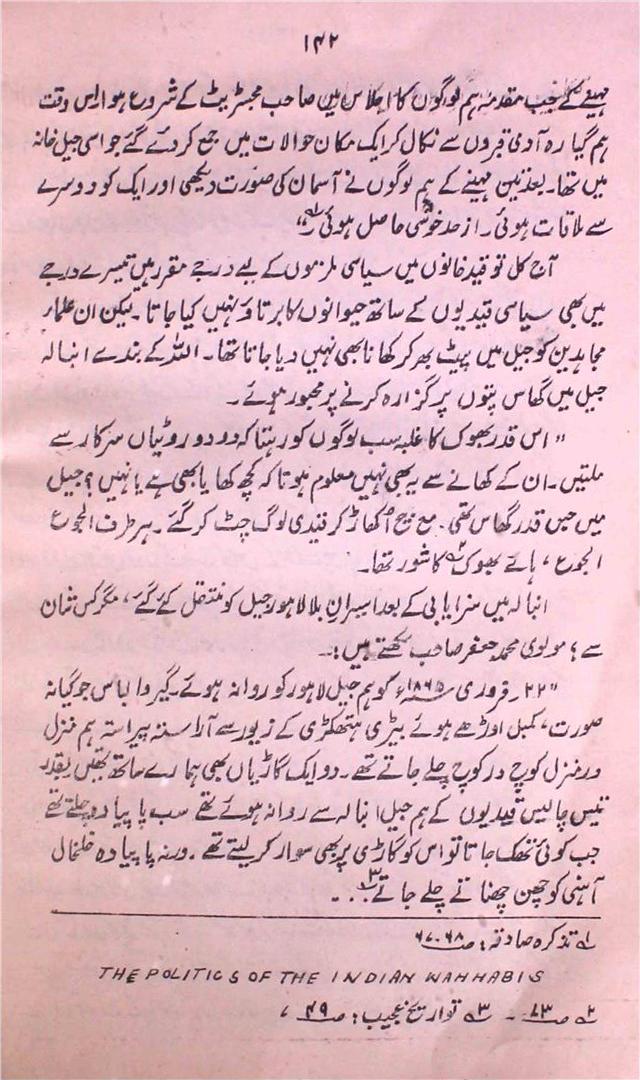 ۱۴۲
مہینے کے جب مقدمہ ہم لوگوں کا اجلاس میں صاحب مجسٹریٹ کے شروع ہوا، اس وقت
ہم گیارہ آدمی قبروں سے نکال کر ایک مکان حوالات میں جمع کر دئے گئے جو اسی جیل خانہ
میں تھا۔ بعد تین مہینے کے ہم لوگوں نے آسمان کی صورت دیکھی اور ایک کو دوسرے
سے ملاقات ہوئی۔ از حد خوشی حاصل ہوئی۔"
آج کل تو قید خانوں میں سیاسی ملزموں کے لیے درجے مقرر ہیں تیسرے درجے
میں بھی سیاسی قیدیوں کے ساتھ حیوانوں کا برتاؤ نہیں کیا جاتا۔ لیکن ان علماء
مجاہدین کو جیل میں پیٹ بھر کر کھانا بھی نہیں دیا جاتا تھا۔ اللہ کے بندے انبالہ
جیل میں گھاس پتوں پر گزارہ کرنے پر مجبور ہوئے۔
"اس قدر بھوک کا غلبہ سب لوگوں کو رہتا کہ دو دو روٹیاں سرکار سے
ملتیں۔ ان کے کھانے سے یہ بھی نہیں معلوم ہوتا کہ کچھ کھایا بھی ہے یا نہیں؟ جیل
میں جس قدر گھاس تھی۔ مع بیخ اکھاڑ کر قیدی لوگ چٹ کر گئے۔ ہر طرف الجوع
الجوع، ہائے بھوک کا شور تھا۔"
انبالہ میں سزایابی کے بعد اسیرانِ بلا لاہور جیل کو منتقل کئے گئے، مگر کس شان
سے؟ مولوی محمد جعفر صاحب لکھتے ہیں:۔
"۲۲۔ فروری ۱۸۶۵ء کو ہم جیل لاہور کو روانہ ہوئے۔ گیروا لباس جوگیانہ
صورت، کمبل اوڑھے ہوئے بیڑی ہتھکڑی کے زیور سے آراستہ پیراستہ ہم منزل
در منزل کوچ در کوچ چلے جاتے تھے۔ دو ایک گاڑیاں بھی ہمارے ساتھ تھیں بقدر
تیس چالیس قیدیوں کے ہم جیل انبالہ سے روانہ ہوئے تھے سب پا پیادہ چلتے تھے
جب کوئی تھک جاتا تو اس کو گاڑی پر بھی سوار کر لیتے تھے۔ ورنہ پا پیادہ خلخال
آہنی کو چھن چھناتے چلے جاتے۳...
۱ے تذکرہ صادقہ: صـ ۶۷،۶۸
THE POLITICS OF THE INDIAN WAHHABIS
۲ے صـ ۸۳۔ ۳ے تواریخ عجیب: صـ ۴۹،